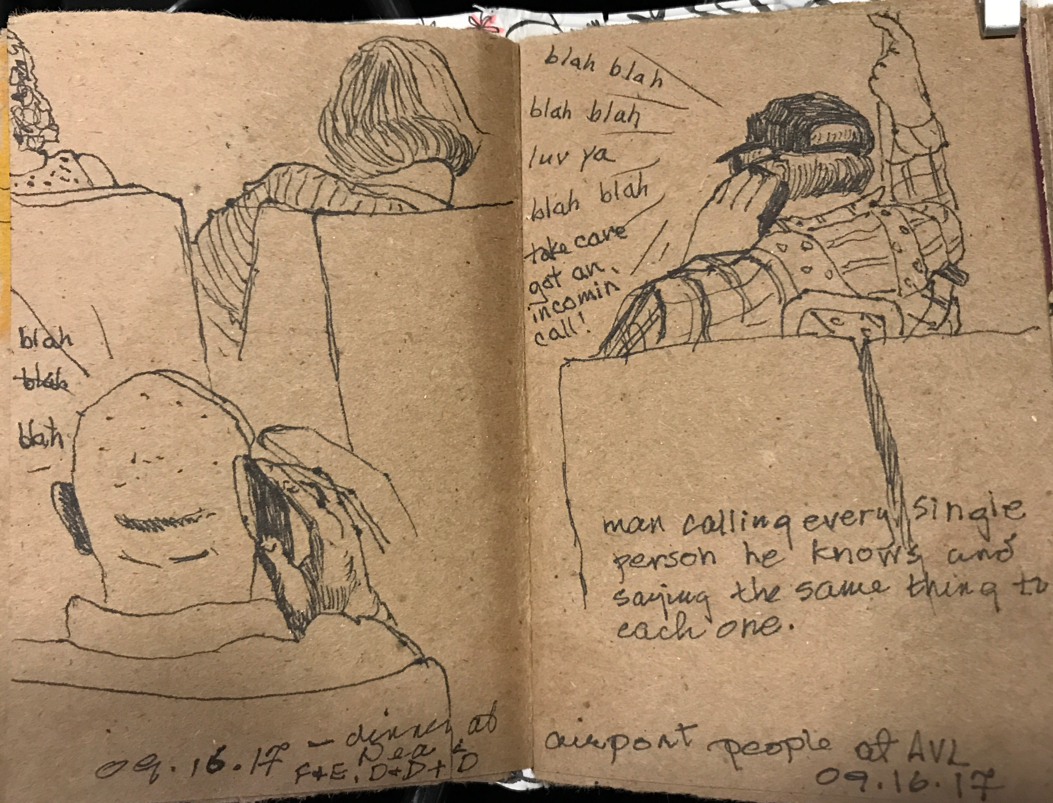 blah
blah
blah
09.16.17 – dinner at
Nea &
F+E, D+D+D
blah blah
blah blah
luv ya
blah blah
take care
got an
incomin
call!
man calling every single
person he knows and
saying the same thing to
each one.
airport people at AVL
09.16.17